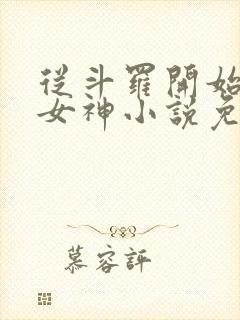 從斗羅開始
女神小說免
慕容評